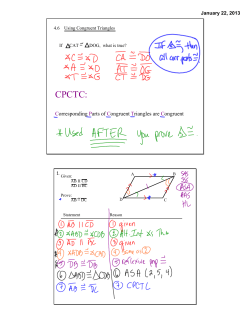 January 22, 2013
4.6 Using Congruent Triangles
If △CAT ≅ △DOG, what is true?
If △ ≅, then
all corr parts ≅
∡C ≅ ∡D
∡A ≅ ∡O
∡T ≅ ∡G
CA ≅ DO
AT ≅ OG
CT ≅ DG
CPCTC:
Corresponding Parts of Congruent Triangles are Congruent
* Used AFTER you prove △ ≅
1.
Given:
AB || CD
AD || BC
Prove:
A
B
D
C
ASA
AAS
HL
Statement Reason
① AB || CD ① given
② ∡ABD ≅ ∡CDB ② Alt. Int ∡s Thm
③ AD || BC ③ given
④ ∡ADB ≅ ∡CBD ④ same as 2
⑤ DB ≅ DB ⑤ reflexive prop ≅
⑥ △ABD ≅ △CDB ⑥ ASA (2, 5, 4)
⑦ ⑦ CPCTC